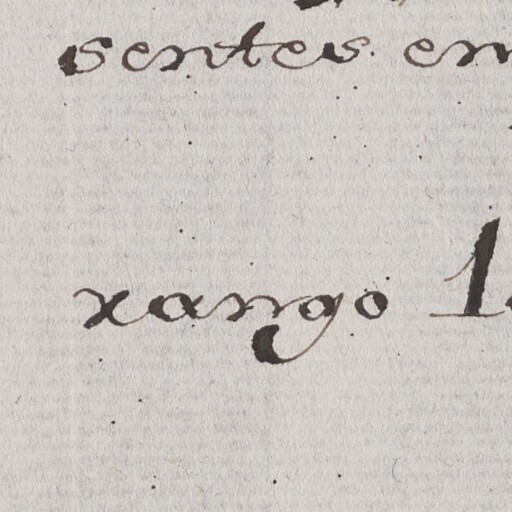 sentes em
xango